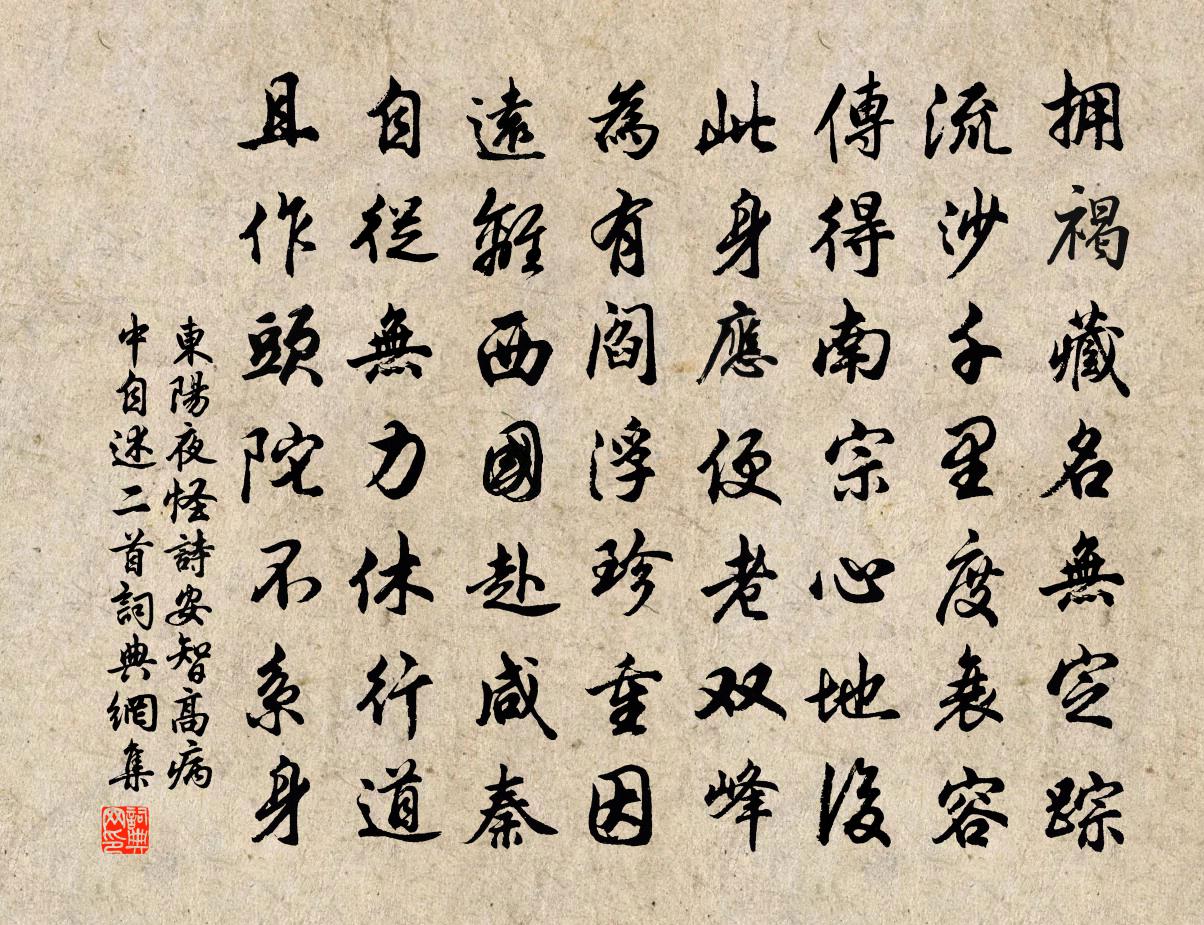 拥褐藏名無定踪
流沙千里度衰容
傳得南宗心地後
此身應便老双峰
為有閻浮珍重因
遠離西國赴咸秦
自從無力休行道
且作頭陀不系身
東陽夜怪詩安智高病
中自述二首詞典網集
詞典网印